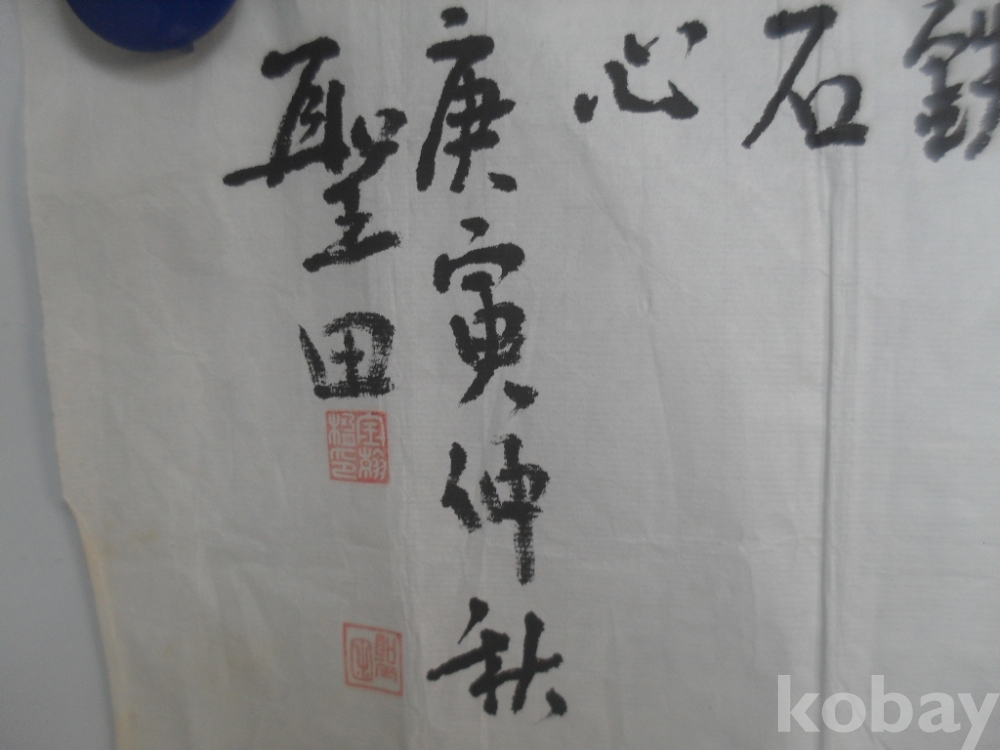 鉄石心
庚寅仲秋
聖田
kobay